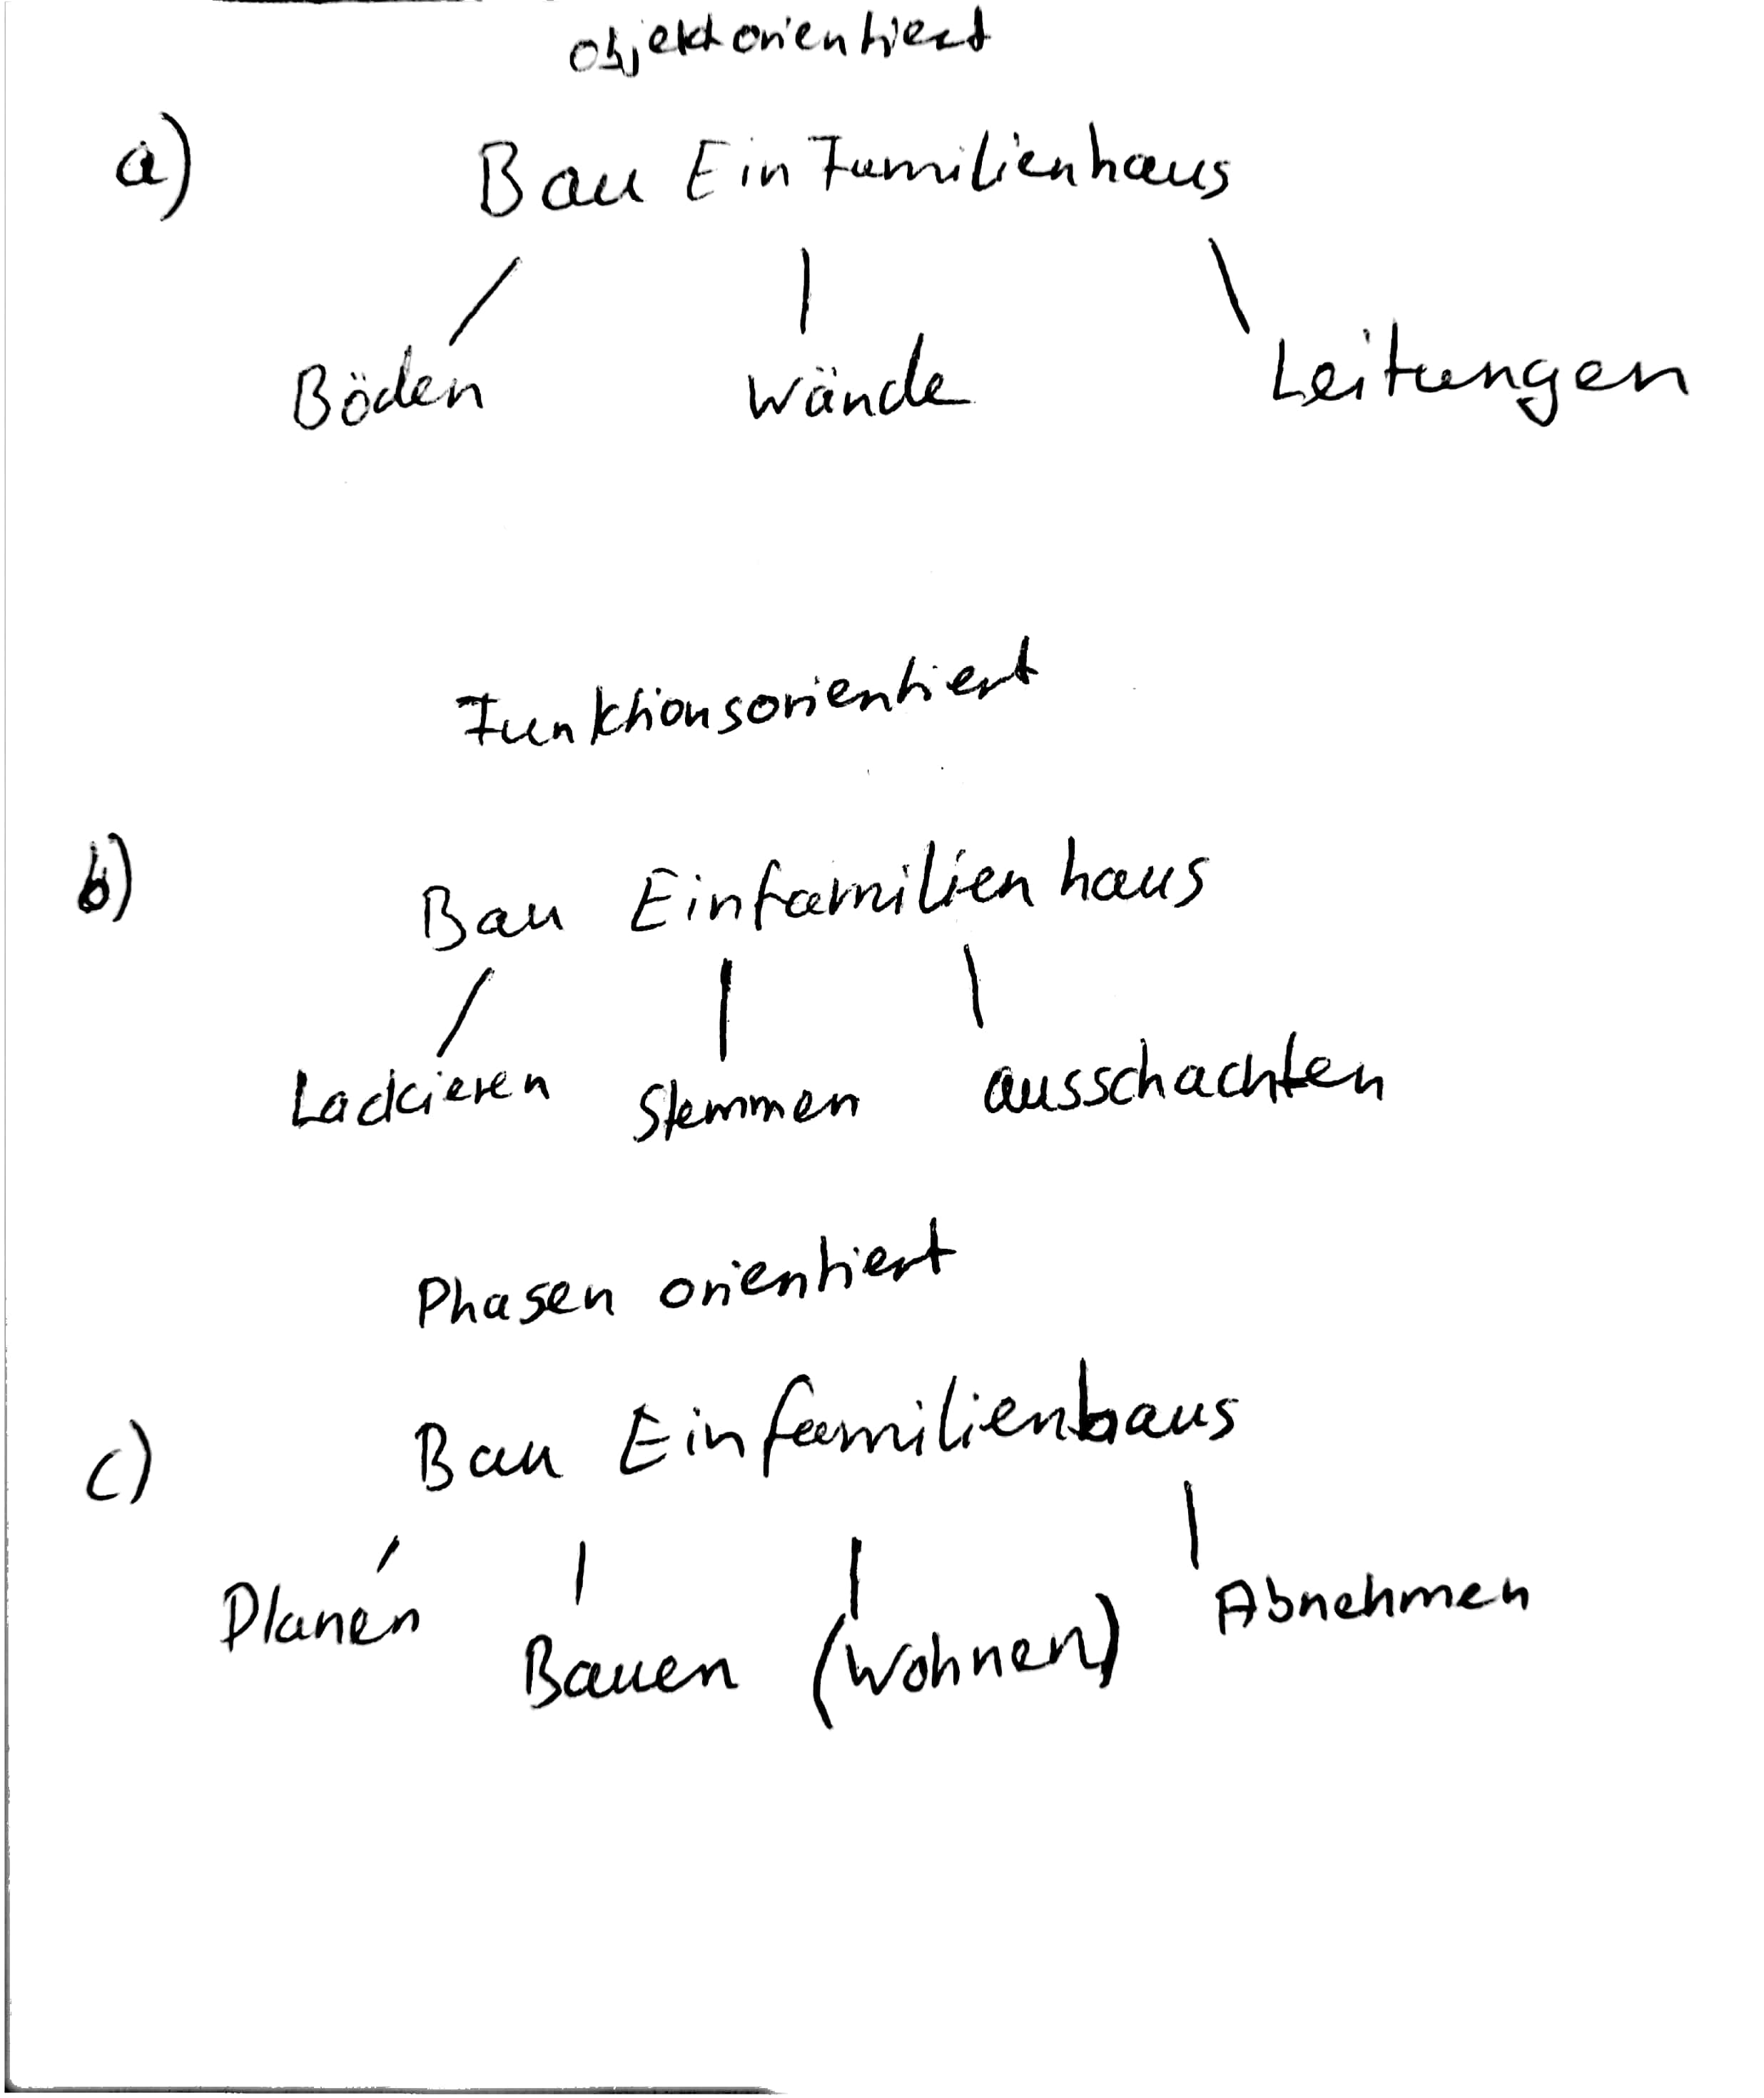 objektorientiert
a) Bau EinFamilienhaus
Böden Wände Leitungen
Funktionsorientiert
b) Bau Einfamilienhaus
Lackieren stemmen ausschachten
Phasen orientiert
c) Bau Einfamilienhaus
Planen Bauen (Wohnen) Abnehmen